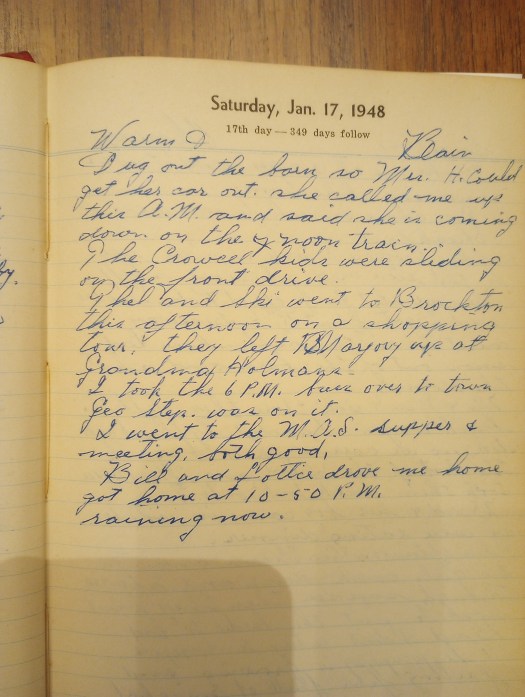 Saturday, Jan. 17, 1948
17th day — 349 days follow
Warm & Rain
Dug out the barn so Mrs. H. Could
get her car out. she called me up
this A.M. and said she is coming
down on the noon train.
The Crowell kids were sliding
on the front drive.
Thel and Ski went to Brockton
this afternoon on a shopping
tour. they left Marjory up at
Grandma Holmans-
I took the 6 P.M. bus over to town
Geo Step. was on it.
I went to the M.A.S. supper &
meeting, both good,
Bill and Lottie drove me home
got home at 10-50 P.M.
raining now.